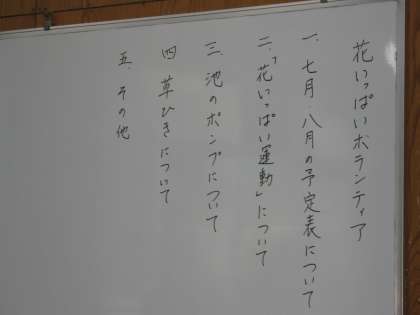 花いっぱいボランティア
一、七月・八月の予定表について
二、「花いっぱい運動」について
三、池のポンプについて
四、草ひきについて
五、その他